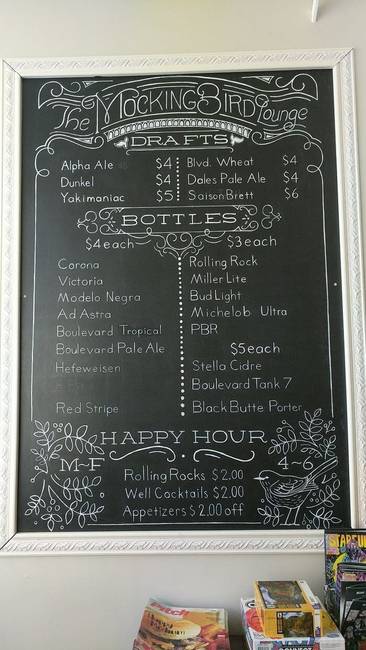 The MockingBird Lounge
DRAFTS
Alpha Ale $4 Blvd. Wheat $4
Dunkel $4 Dales Pale Ale $4
Yakimaniac $5 Saison Brett $6
BOTTLES
$4 each $3 each
Corona Rolling Rock
Victoria Miller Lite
Modelo Negra Bud Light
Ad Astra Michelob Ultra
Boulevard Tropical PBR
Boulevard Pale Ale $5 each
Hefeweisen Stella Cidre
Boulevard Tank 7
Red Stripe Black Butte Porter
HAPPY HOUR
M-F 4-6
Rolling Rocks $2.00
Well Cocktails $2.00
Appetizers $2.00 off